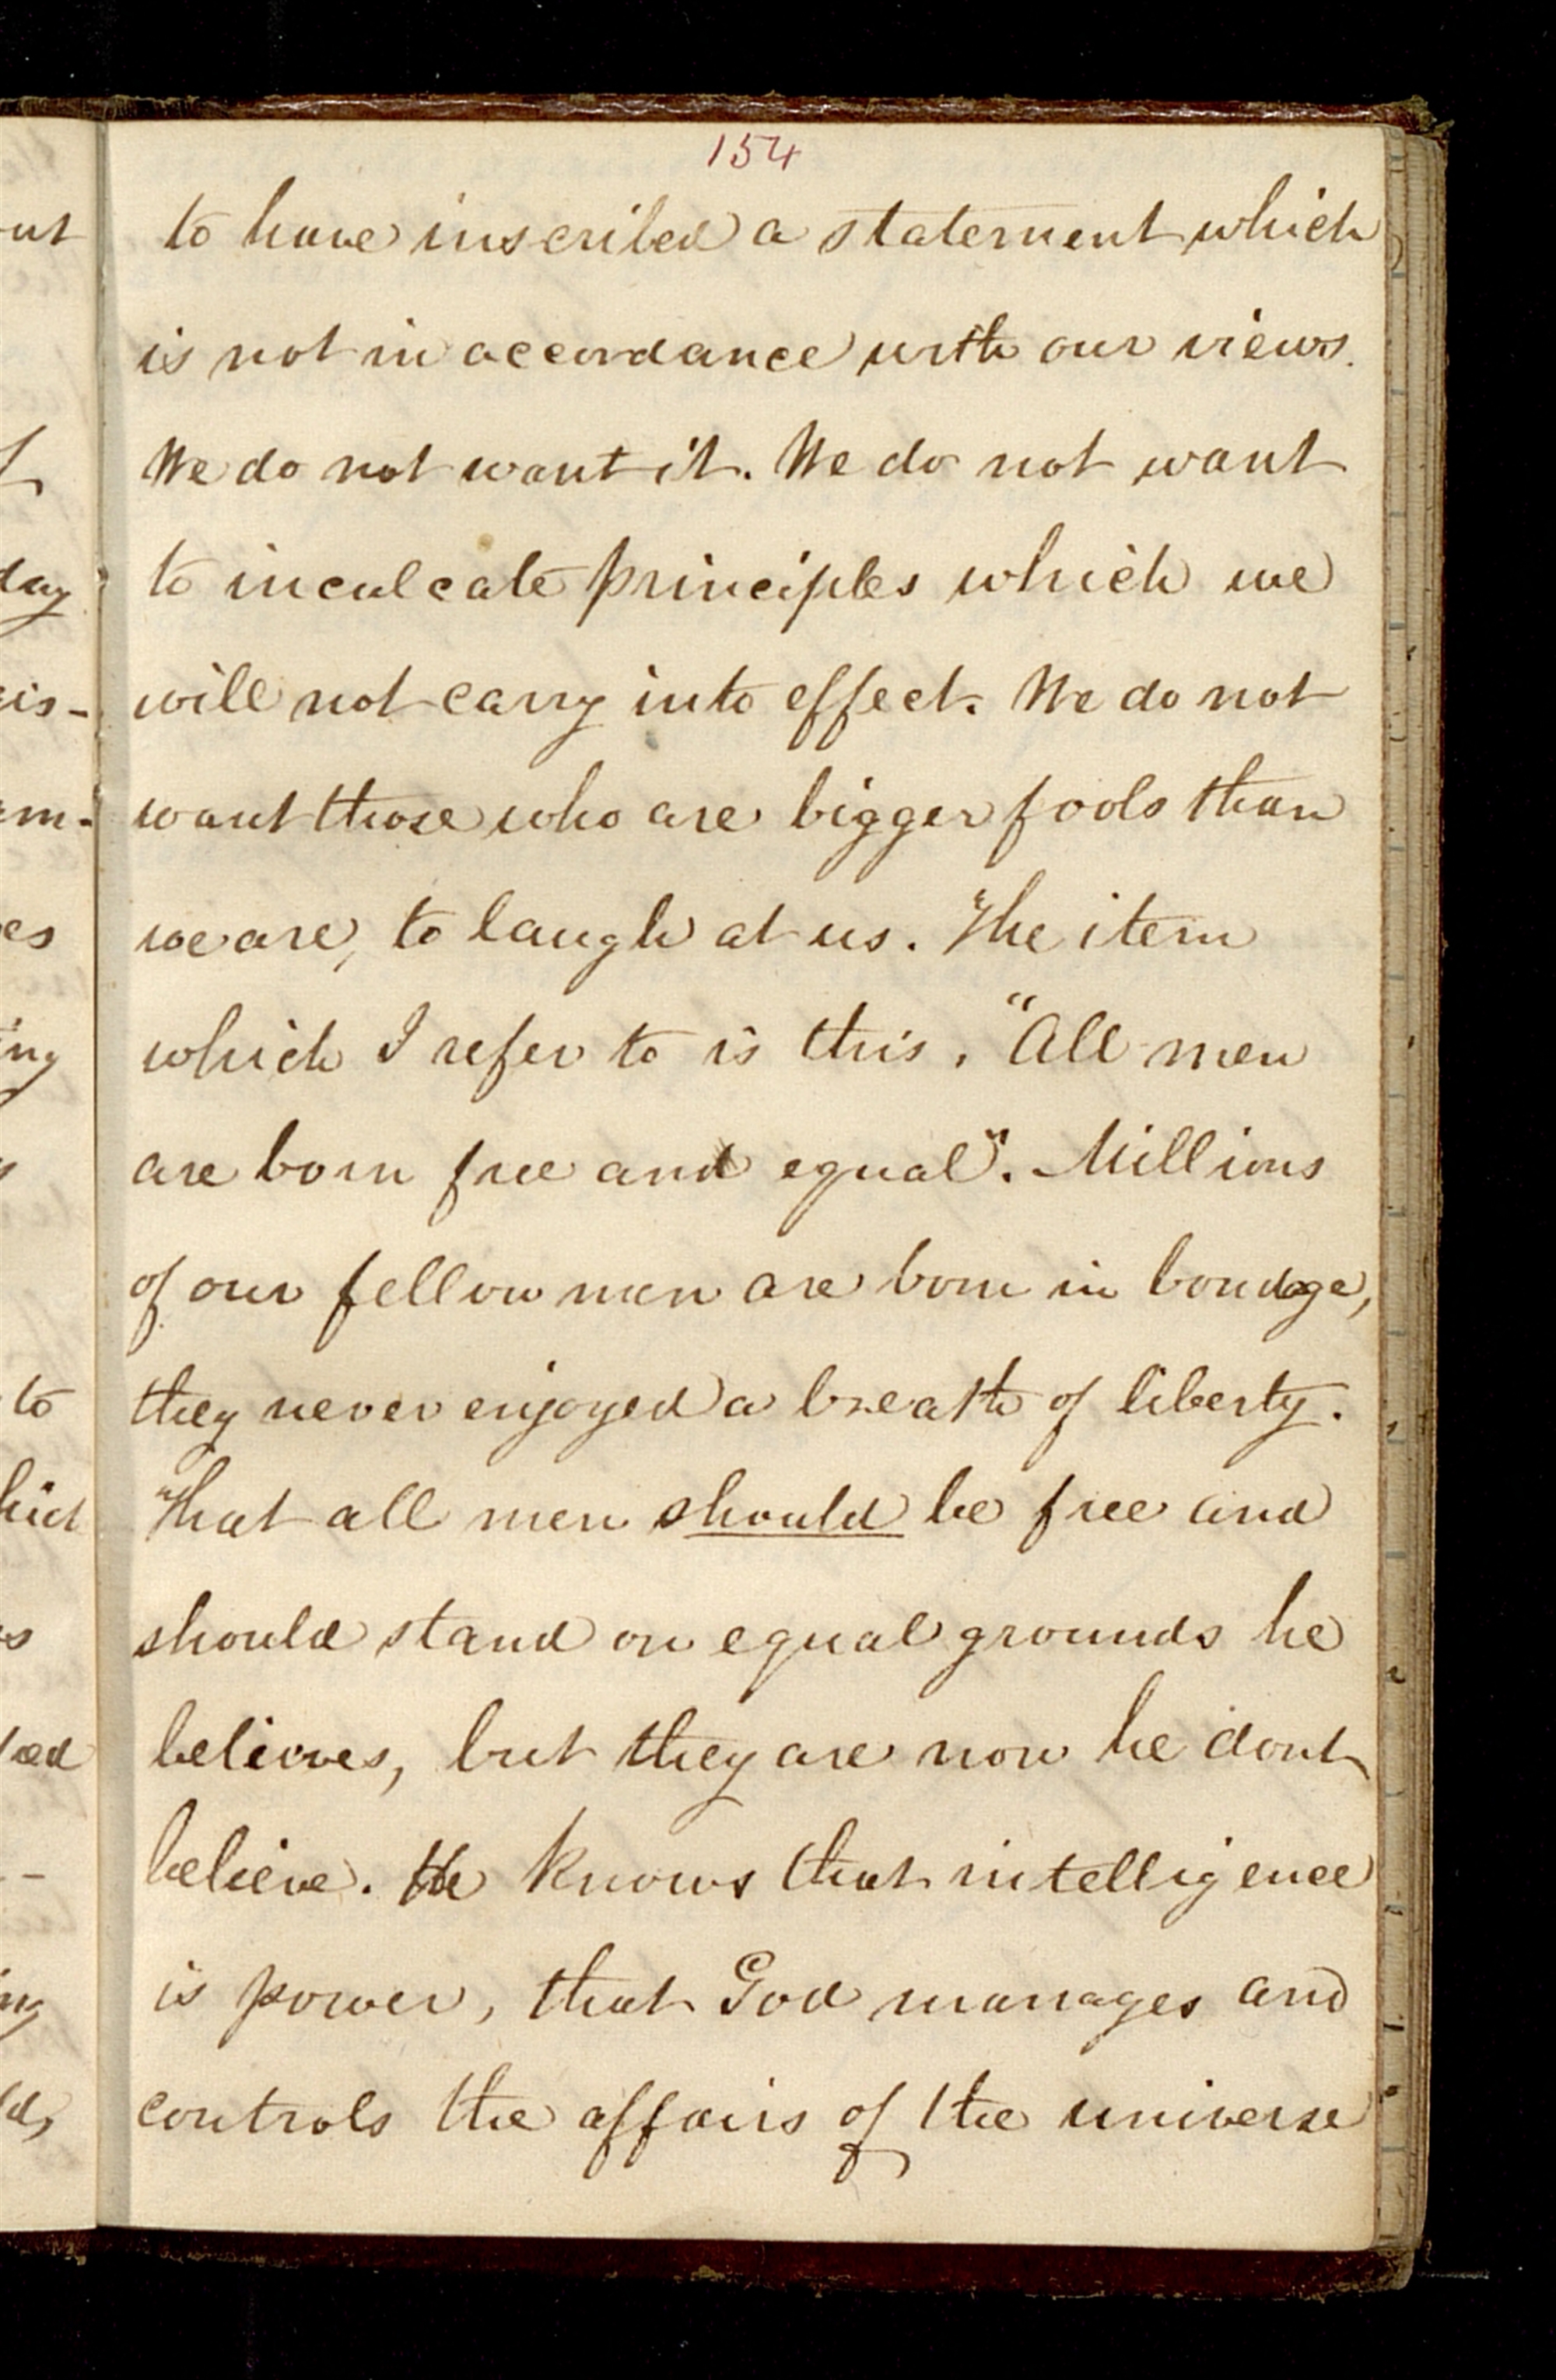 154
to have inscribed a statement which
is not in accordance with our views.
We do not want it. We do not want
to inculcate principles which we
will not carry into effect. We do not
want those who are bigger fools than
we are, to laugh at us. The item
which I refer to is this, "All men
are born free and equal". Millions
of our fellow men are born in bondage,
they never enjoyed a breath of liberty.
That all men should be free and
should stand on equal grounds he
believes, but they are now he dont
believe. He knows that intelligence
is power, that God manages and
controls the affairs of the universe